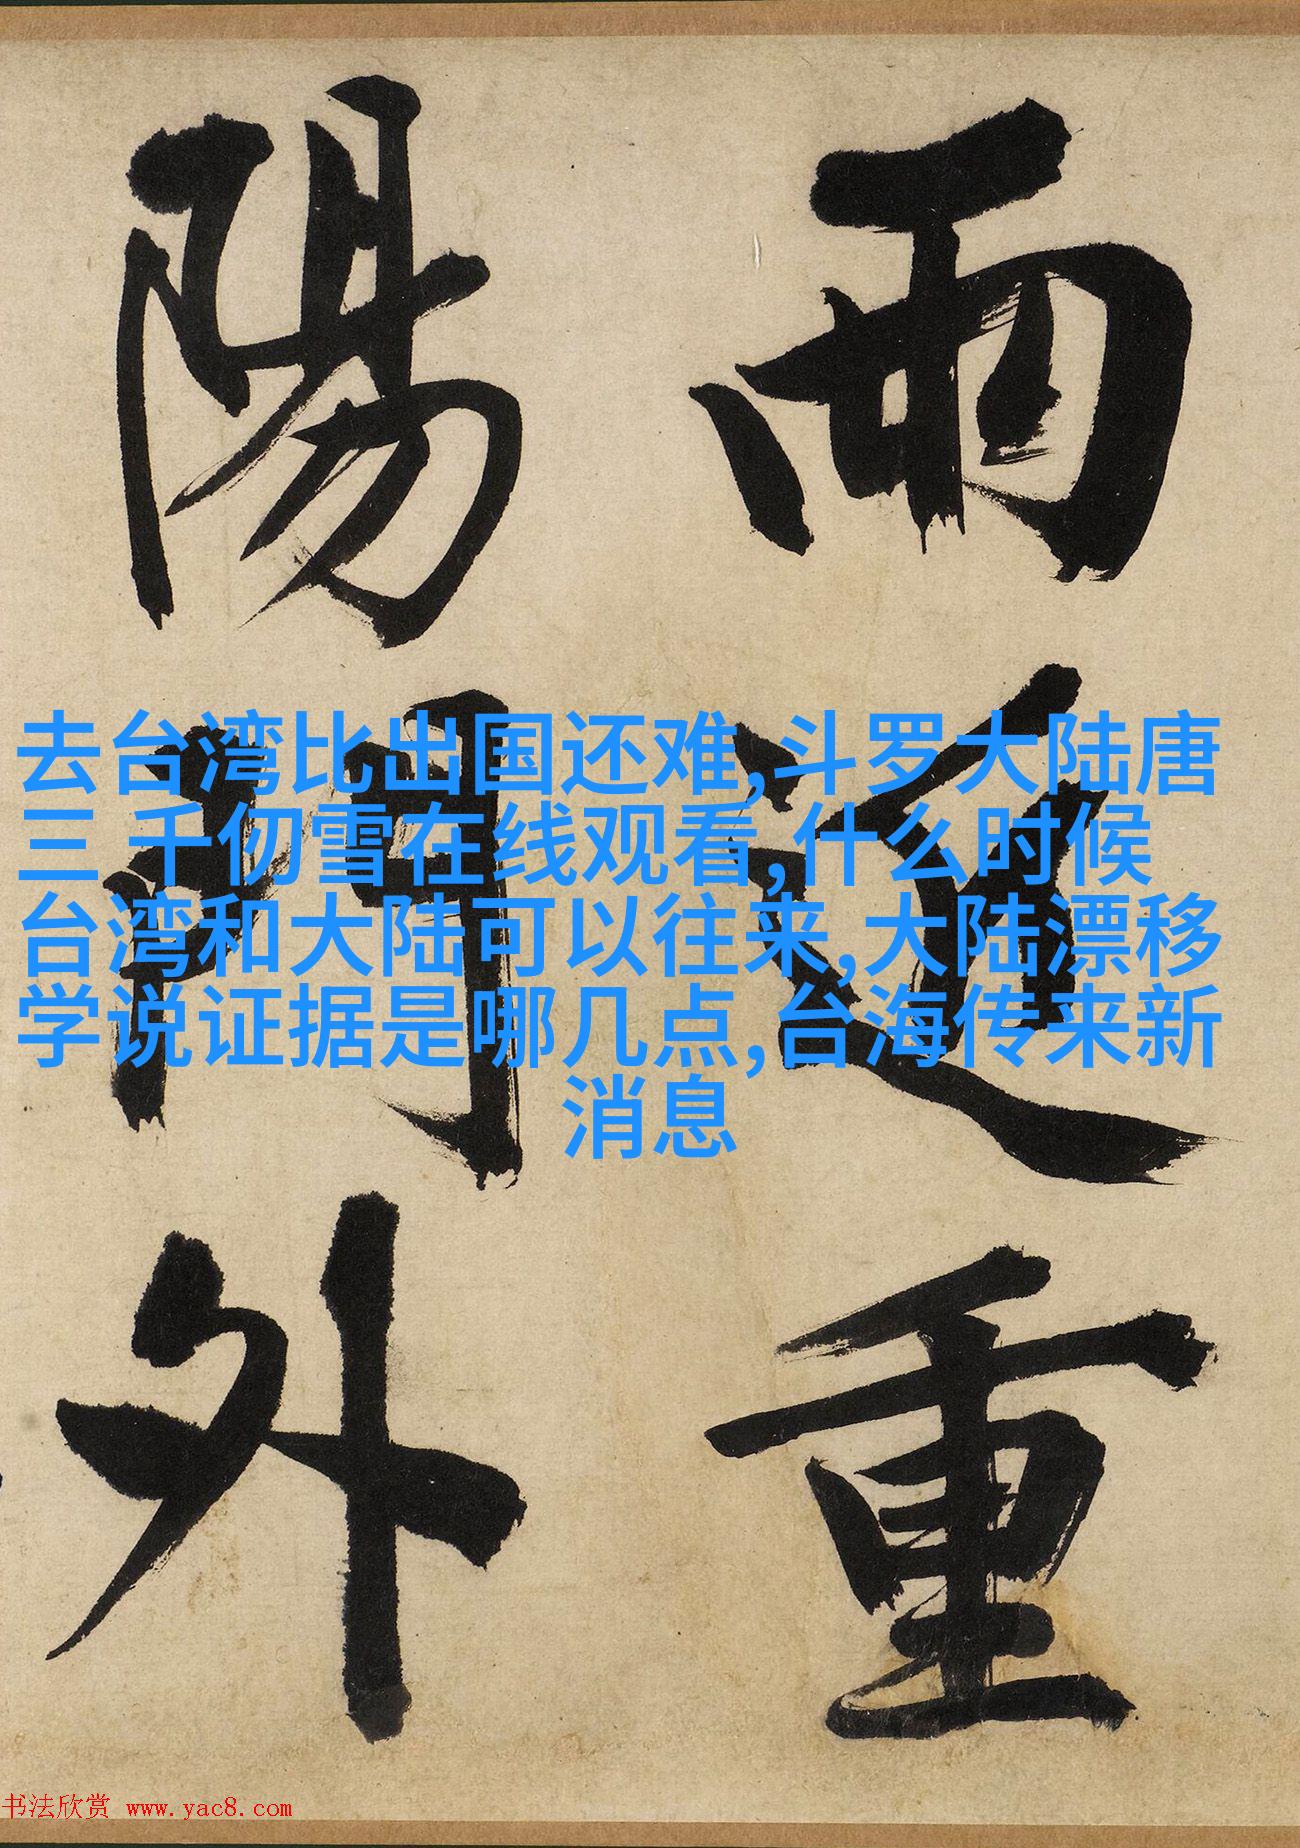 雨過重
陽門外
去台湾比出国还难,斗罗大陆唐
三 千仞雪在线观看,什么时候
台湾和大陆可以往来,大陆漂移
学说证据是哪几点,台海传来新
消息
书法欣赏 www.yac8.com